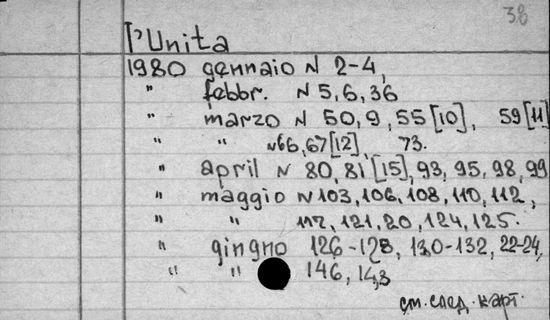 38
l'Unita
1980 gennaio N 2-4,
" febbr. N 5, 6, 36
" marzo N 50, 9, 55 [10], 59 [11]
" " N66, 67 [12], 73.
" april N 80, 81 [15], 93, 95, 98, 99
" maggio N 103, 106, 108, 110, 112,
" " 117, 121, 20, 124, 125.
" gingno 126-128, 130-132, 22-24,
" " 146, 143
см. след. карт.